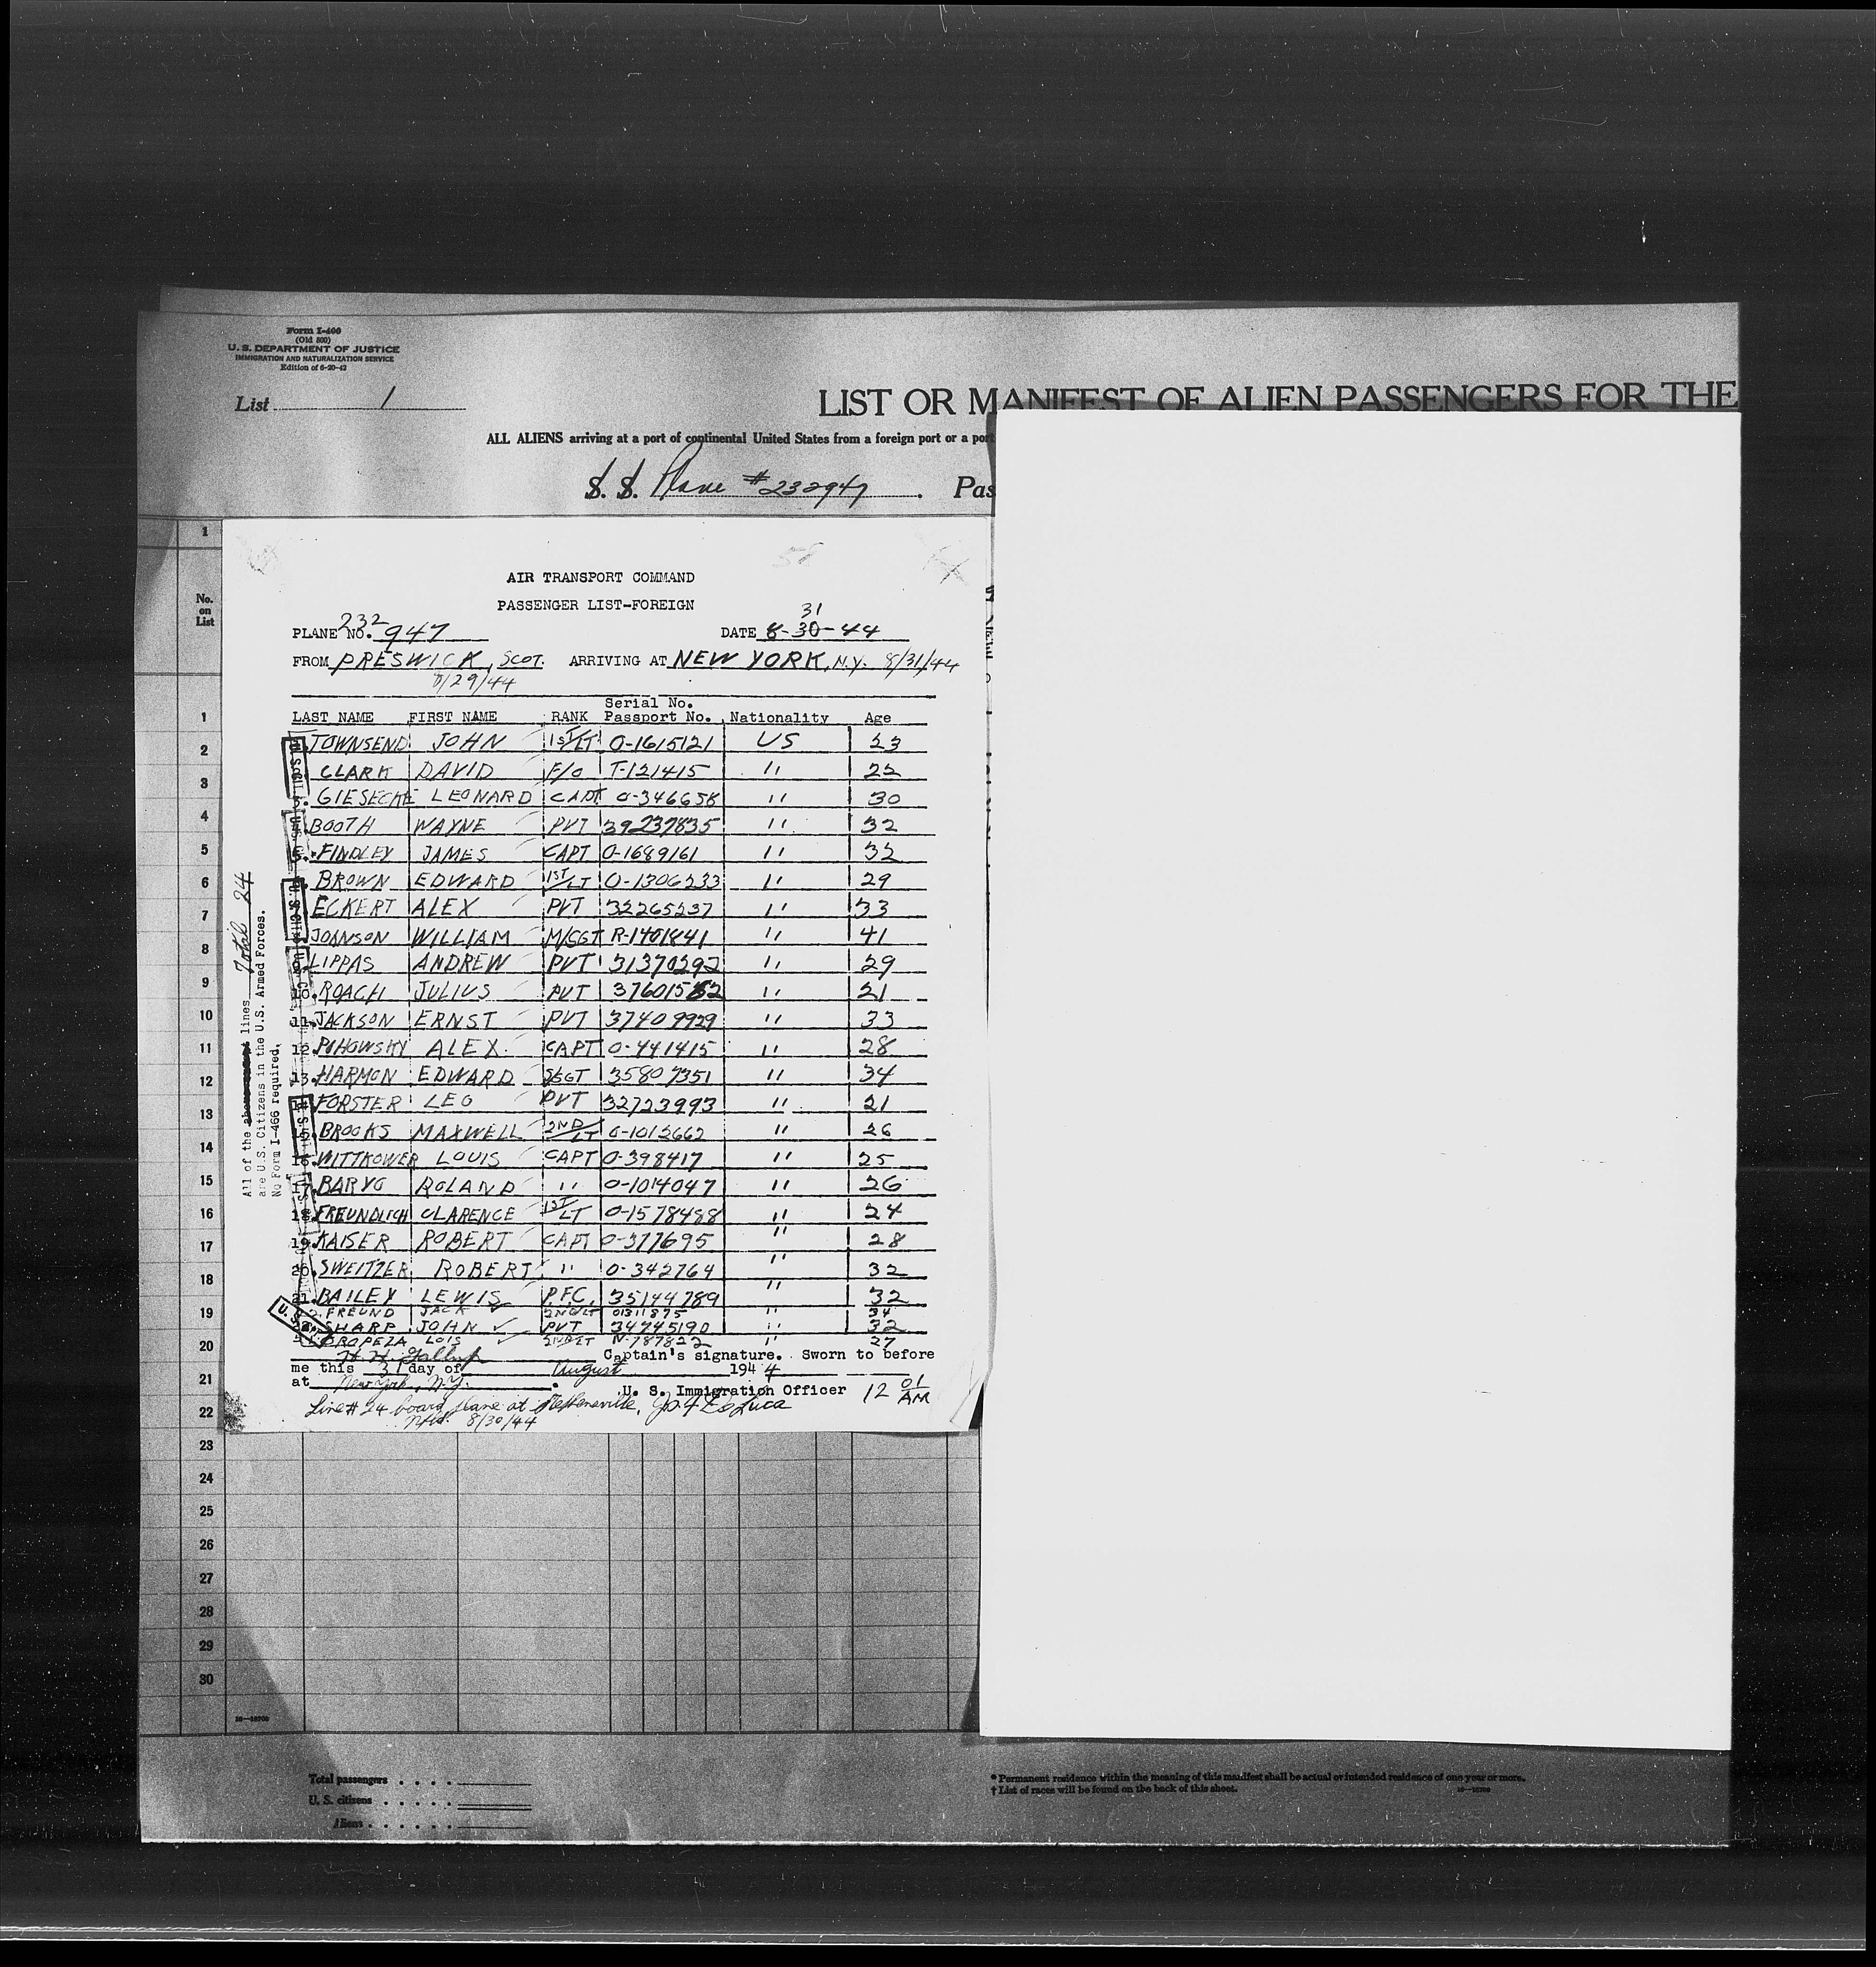 Form I-466
(Old 500)
U. S. DEPARTMENT OF JUSTICE
IMMIGRATION AND NATURALIZATION SERVICE
Edition of 6-20-42
List 1
LIST OR MANIFEST OF ALIEN PASSENGERS FOR THE
ALL ALIENS arriving at a port of continental United States from a foreign port or a port
S. S. Plane #232947 . Pas
No. on List
AIR TRANSPORT COMMAND
PASSENGER LIST-FOREIGN
PLANE NO. 232 947 DATE 8-30-44 31
FROM PRESWICK, SCOT. ARRIVING AT NEW YORK, N.Y. 8/31/44
8/29/44
LAST NAME FIRST NAME RANK Serial No. Passport No. Nationality Age
TOWNSEND JOHN 1ST/LT O-1615121 US 23
CLARK DAVID F/O T-121415 " 22
3. GIESECKE LEONARD CAPT O-346658 " 30
BOOTH WAYNE PVT 39237835 " 32
5. FINDLEY JAMES CAPT O-1689161 " 32
BROWN EDWARD 1ST/LT O-1306233 " 29
ECKERT ALEX PVT 32265237 " 33
JOANSON WILLIAM M/SGT R-1401841 " 41
9. LIPPAS ANDREW PVT 31370292 " 29
10. ROACH JULIUS PVT 37601552 " 21
11. JACKSON ERNST PVT 37409929 " 33
12. POHOWSKY ALEX. CAPT O-441415 " 28
13. HARMON EDWARD S/SGT 35807351 " 34
14. FORSTER LEO PVT 32723993 " 21
15. BROOKS MAXWELL 2ND/LT O-1012662 " 26
16. WITTKOWER LOUIS CAPT O-398417 " 25
17. BARYO ROLAND " O-1014047 " 26
18. FREUNDLICH CLARENCE 1ST/LT O-1578488 " 24
19. KAISER ROBERT CAPT O-377695 " 28
20. SWEITZER ROBERT " O-342764 " 32
21. BAILEY LEWIS P.F.C. 35144789 " 32
FREUND JACK 2ND/LT 01311875 " 34
SHARP JOHN PVT 34745190 " 32
OROPEZA LOIS 2ND/LT N-787822 " 27
H. H. Gallup Captain's signature. Sworn to before
me this 31 day of August 1944
at New York, N.Y. . U. S. Immigration Officer 12 01 AM
Line # 24 board plane at Stephenville,
Nfld. 8/30/44
All of the above lines Total 24
are U.S. Citizens in the U.S. Armed Forces.
No Form I-466 required.
1
1
2
3
4
5
6
7
8
9
10
11
12
13
14
15
16
17
18
19
20
21
22
23
24
25
26
27
28
29
30
Total passengers . . . .
U. S. citizens . . . . .
Aliens . . . . . .
* Permanent residence within the meaning of this manifest shall be actual or intended residence of one year or more.
† List of races will be found on the back of this sheet.